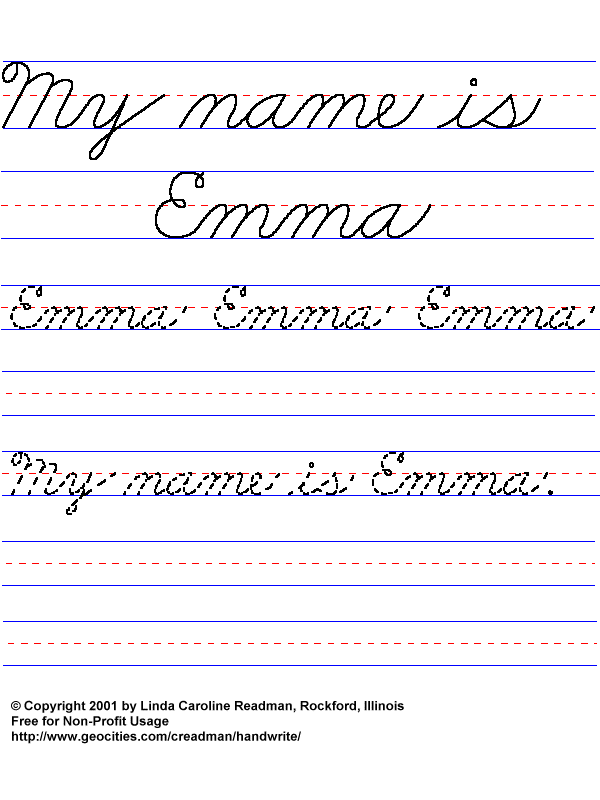 My name is
Emma
Emma Emma Emma
My name is Emma.
© Copyright 2001 by Linda Caroline Readman, Rockford, Illinois
Free for Non-Profit Usage
http://www.geocities.com/creadman/handwrite/